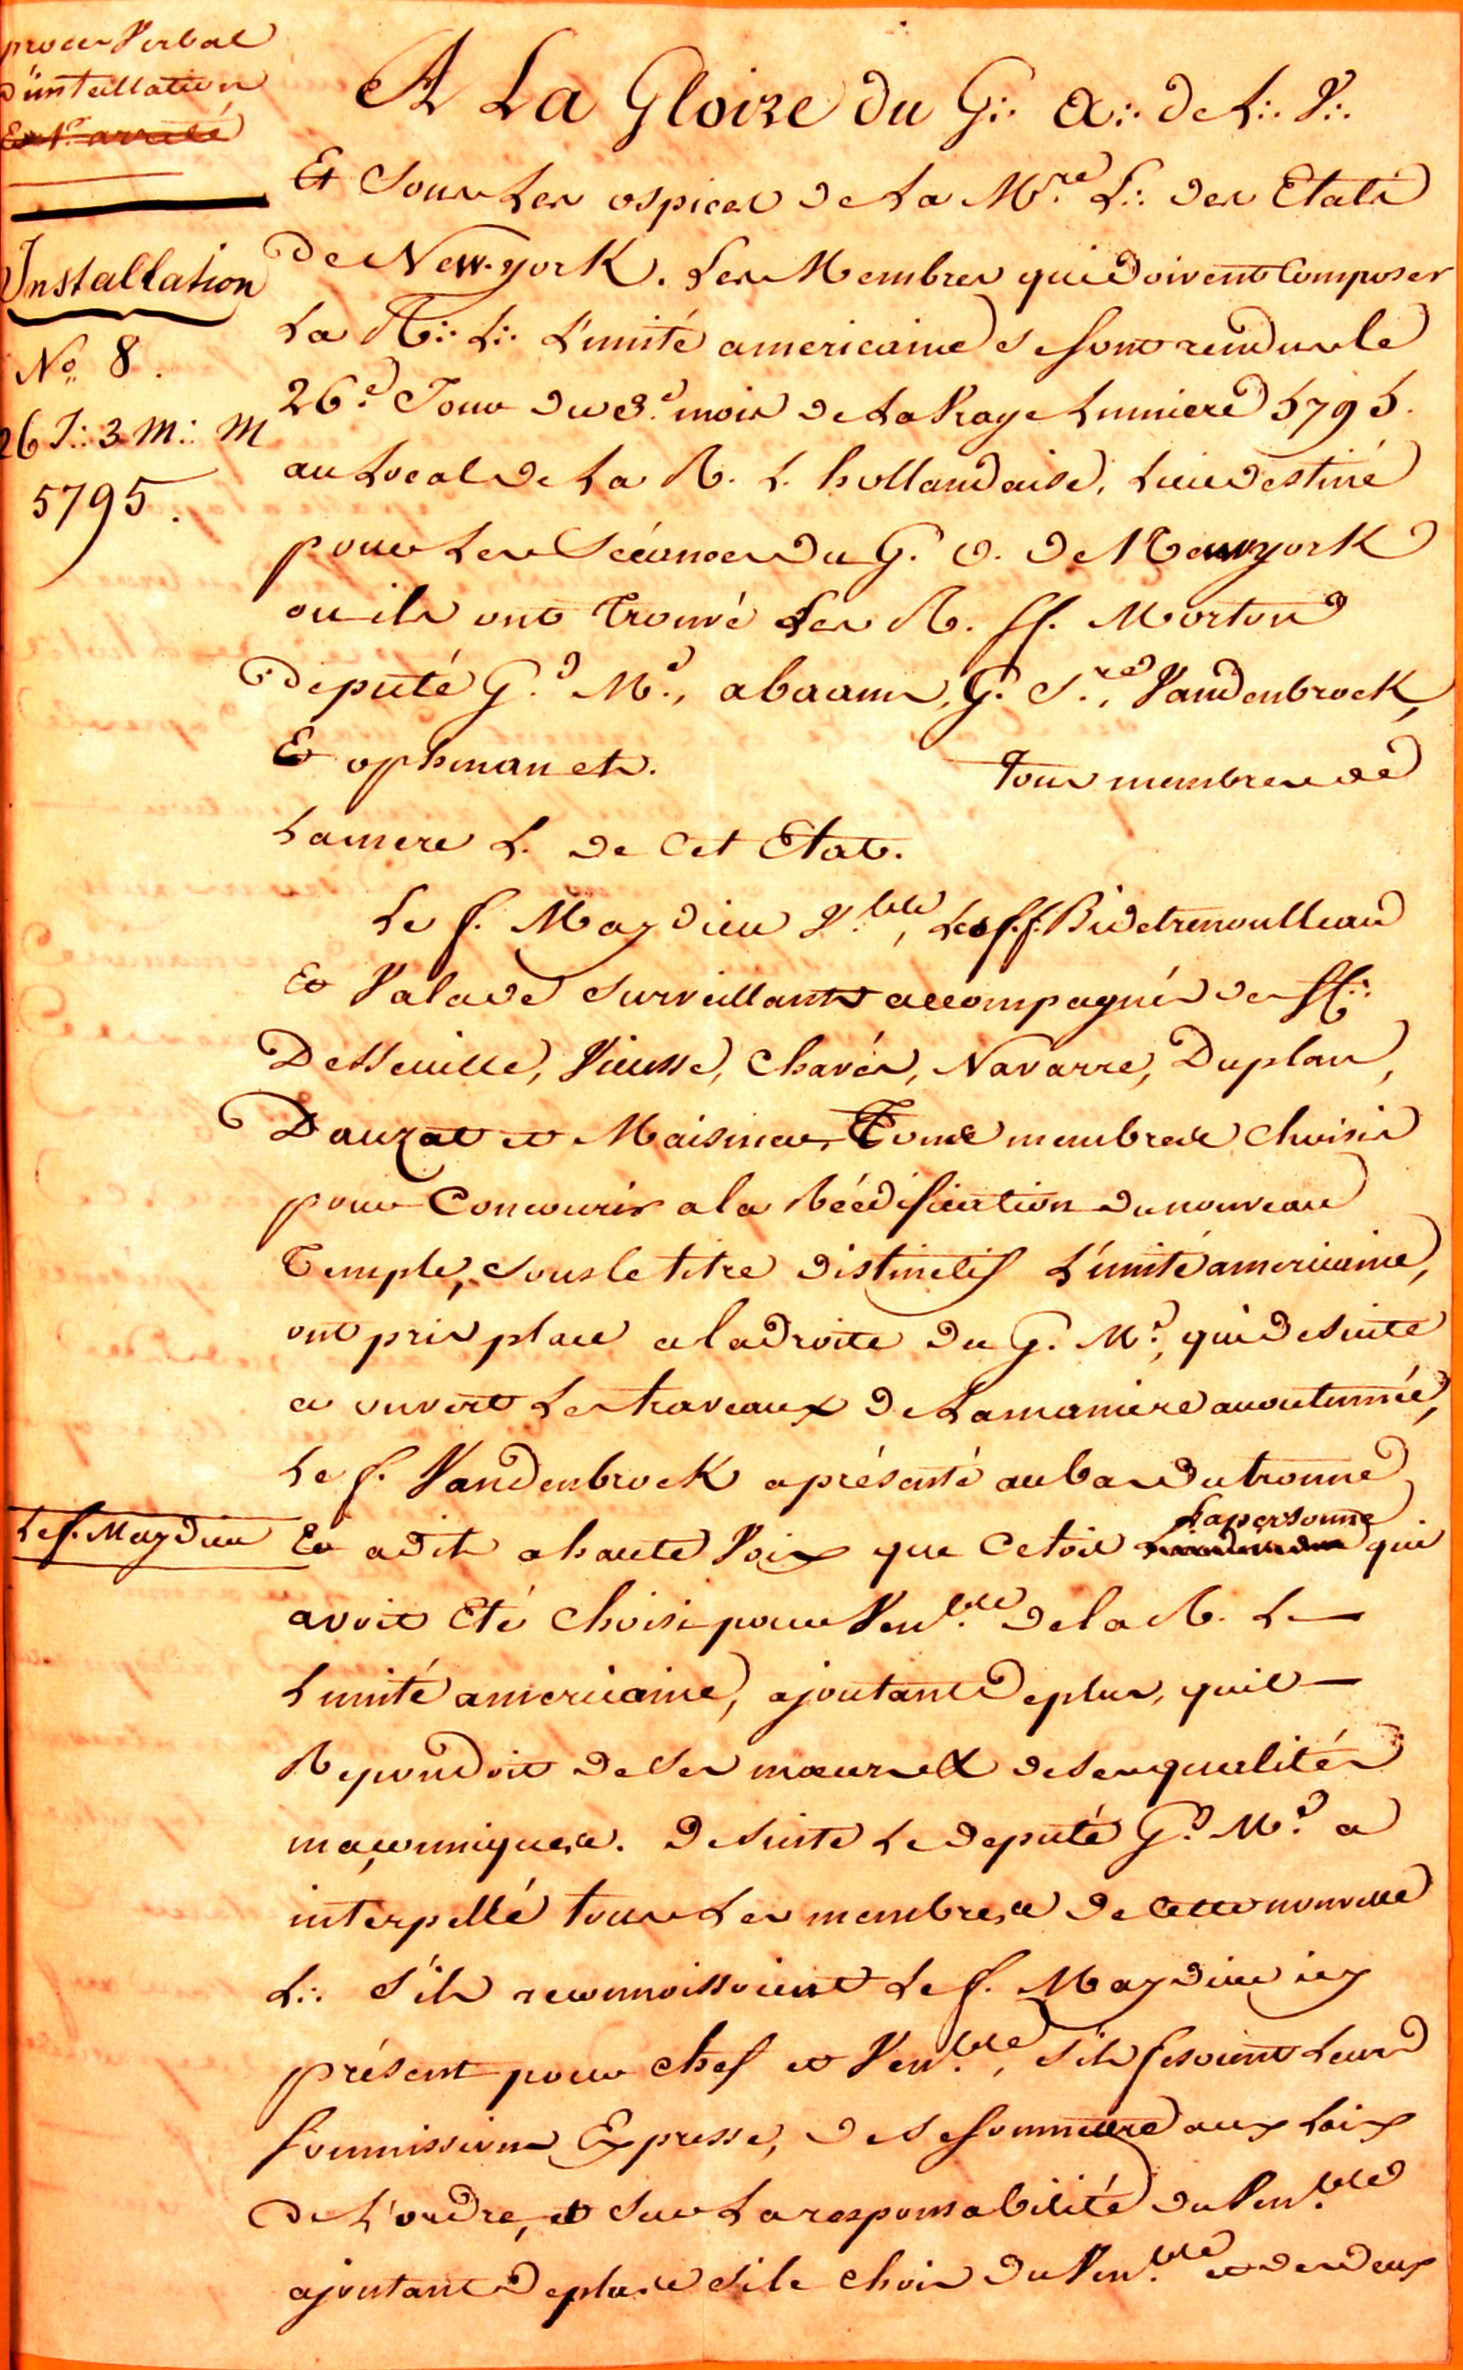 procès Verbal
d'installation
Et l'arrêté
Installation
No. 8.
26 J∴ 3 M∴ M
5795.
A La Gloire du G∴ A∴ de L∴ V∴
Et Sous Les ospices de La Mre. L∴ des Etats
de New-york. Les Membres qui doivent Composer
La R∴ L∴ L'unité americaine se sont rendus le
26e. Jour du 3e. mois de La Vraye Lumiere 5795.
au Local de La R. L. hollandaise, Lieu destiné
pour Les Séances du G. O. de Newyork
ou ils ont trouvé Les R. ff. Morton
Deputé Gd. Me., abaams, G. Sre., Vandenbroek,
Et ophman etc. tous membres de
La mere L. de Cet Etat.
Le f. Mazdieu Vble., Les f.f. Bidetrenoulleau
Et Valade Surveillants accompagnés des ff∴
Desseuille, Vieusse, Chavés, Navarre, Duplan,
Dauzat et Maisinau, Tous membres Choisis
pour Concourir a la Réédification du nouveau
Temple, sous le titre distinctif L'unité americaine,
ont pris place a la droite du G. Me., qui de suite
a ouvert Les travaux de La maniere accoutumée,
Le f. Vandenbroek a présenté au bas du tronne
Le f. Mazdieu
Et a dit a haute Voix que C'etoit La personne qui
avoit Eté Choisi pour Venble. de la R. L
L'unité americaine, ajoutant de plus, qu'il
Repondoit de ses mœurs Et de ses qualités
maçonniques. De suite Le deputé Gd. Me. a
interpellé tous Les membres de Cette nouvelle
L∴ S'ils reconnoissoient Le f. Mazdieu icy
présent pour Chef et Venble., s'ils fesoient Leur
soumission Expresse, de se soumettre aux Loix
de L'ordre, et sur La responsabilité du Venble.
ajoutant de plus si le Choix du Venble. et des deux